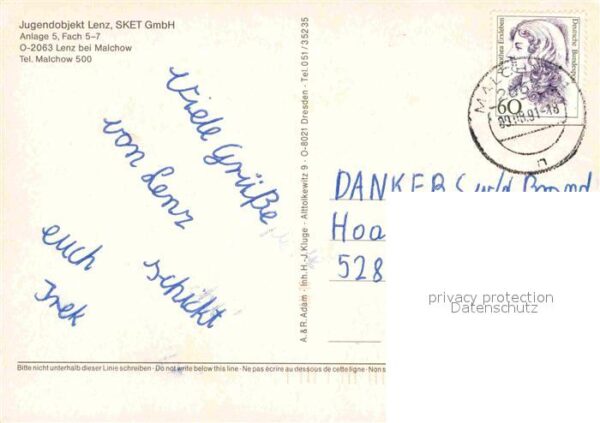 Jugendobjekt Lenz, SKET GmbH
Anlage 5, Fach 5–7
O-2063 Lenz bei Malchow
Tel. Malchow 500
Viele Grüße
von Lenz
schickt
euch
Irek
A. & R. Adam · Inh. H.-J. Kluge · Alttolkewitz 9 · O-8021 Dresden · Tel. 051/35235
Deutsche Bundespost
60
MALCHOW
DANKER
Hoa
528
privacy protection
Datenschutz
Bitte nicht unterhalb dieser Linie schreiben · Do not write below this line · Ne pas écrire au dessous de cette ligne · Non s